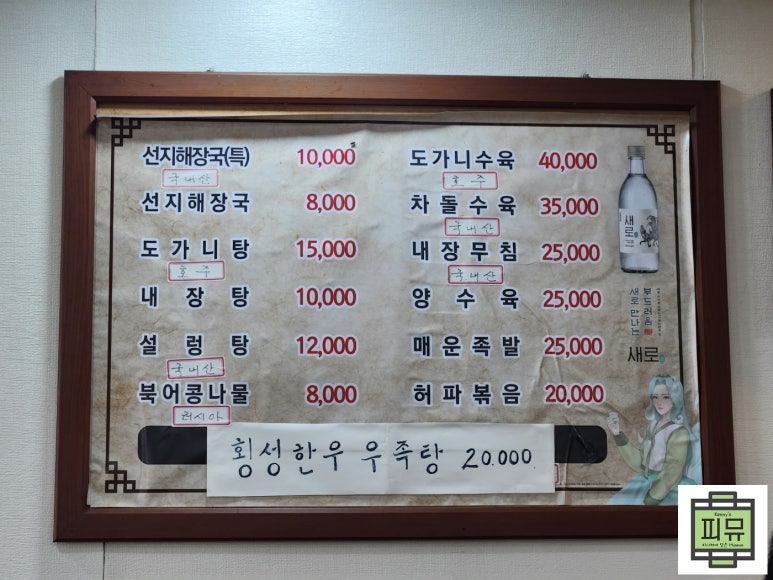 선지해장국(특) 10,000
국내산
선지해장국 8,000
도가니탕 15,000
호주
내장탕 10,000
설렁탕 12,000
국내산
북어콩나물 8,000
러시아
도가니수육 40,000
호주
차돌수육 35,000
국내산
내장무침 25,000
국내산
양수육 25,000
매운족발 25,000
허파볶음 20,000
횡성한우 우족탕 20.000
새로
부드러움
새로 만나는
새로
Kenny's
피뮤